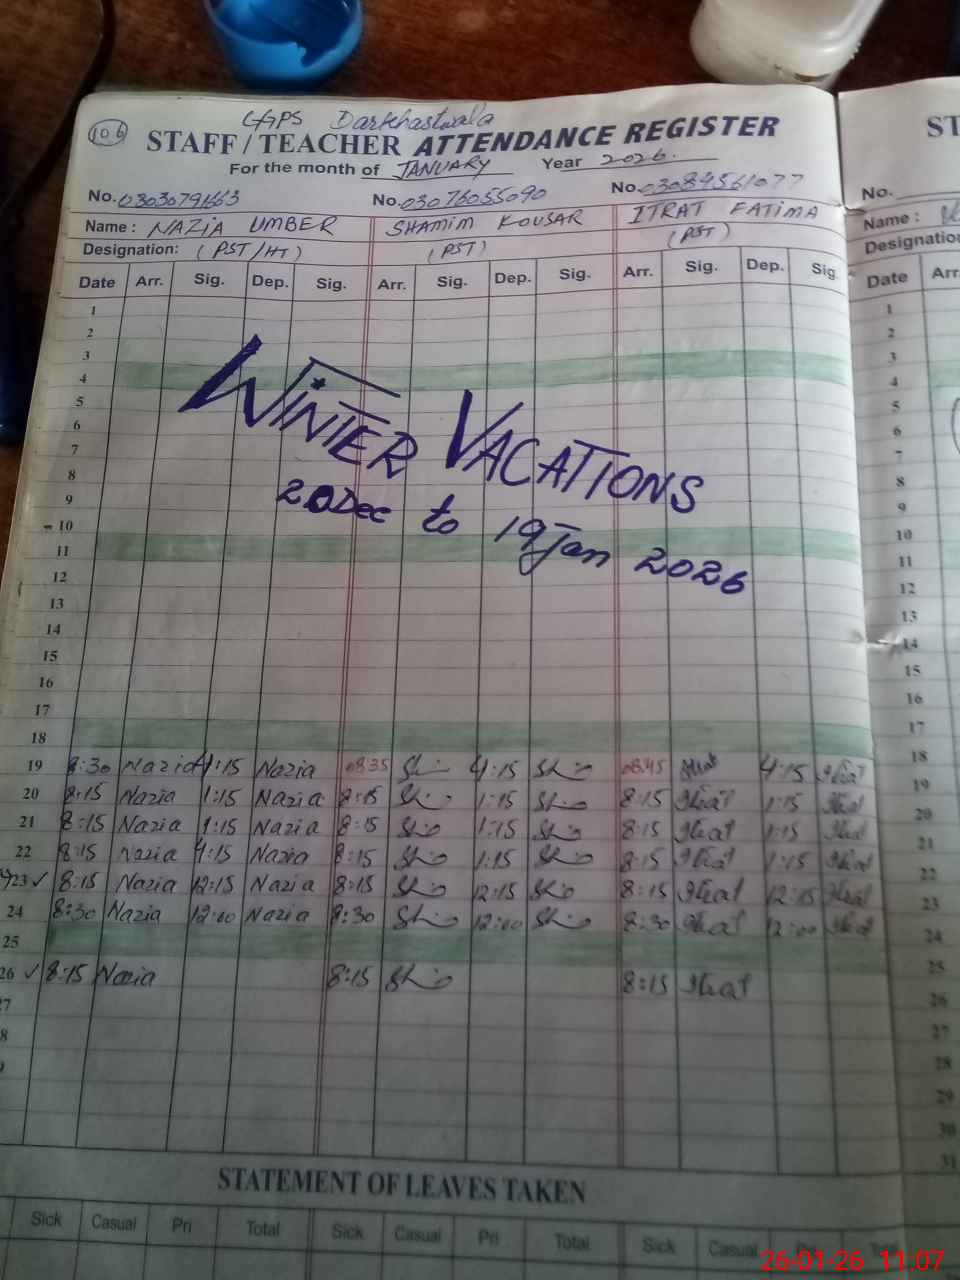 106
GGPS Darkhastwala
STAFF / TEACHER ATTENDANCE REGISTER
For the month of JANUARY Year 2026.
No. 03030791663 No. 03076055090 No. 03084561077
Name : NAZIA UMBER SHAMIM KOUSAR ITRAT FATIMA
Designation: (PST/HT) (PST) (PST)
Date Arr. Sig. Dep. Sig. Arr. Sig. Dep. Sig. Arr. Sig. Dep. Sig.
1
2
3
4
5
6
7
8
9
10
11
12
13
14
15
16
17
18
WINTER VACATIONS
20 Dec to 19 Jan 2026
19 8:30 Nazia 4:15 Nazia 08:35 4:15 08:45 4:15
20 8:15 Nazia 1:15 Nazia 8:15 1:15 8:15 1:15
21 8:15 Nazia 1:15 Nazia 8:15 1:15 8:15 1:15
22 8:15 Nazia 4:15 Nazia 8:15 1:15 8:15 1:15
23 ✓ 8:15 Nazia 12:15 Nazia 8:15 12:15 8:15 12:15
24 8:30 Nazia 12:00 Nazia 8:30 12:00 8:30 12:00
25
26 ✓ 8:15 Nazia 8:15 8:15
27
8
STATEMENT OF LEAVES TAKEN
Sick Casual Pri Total Sick Casual Pri Total Sick Casual
ST
No.
Name :
Designation
Date Arr.
1
2
3
4
5
6
7
8
9
10
11
12
13
14
15
16
17
18
19
20
21
22
23
24
25
26
27
28
29
30
31
26-01-26 11:07